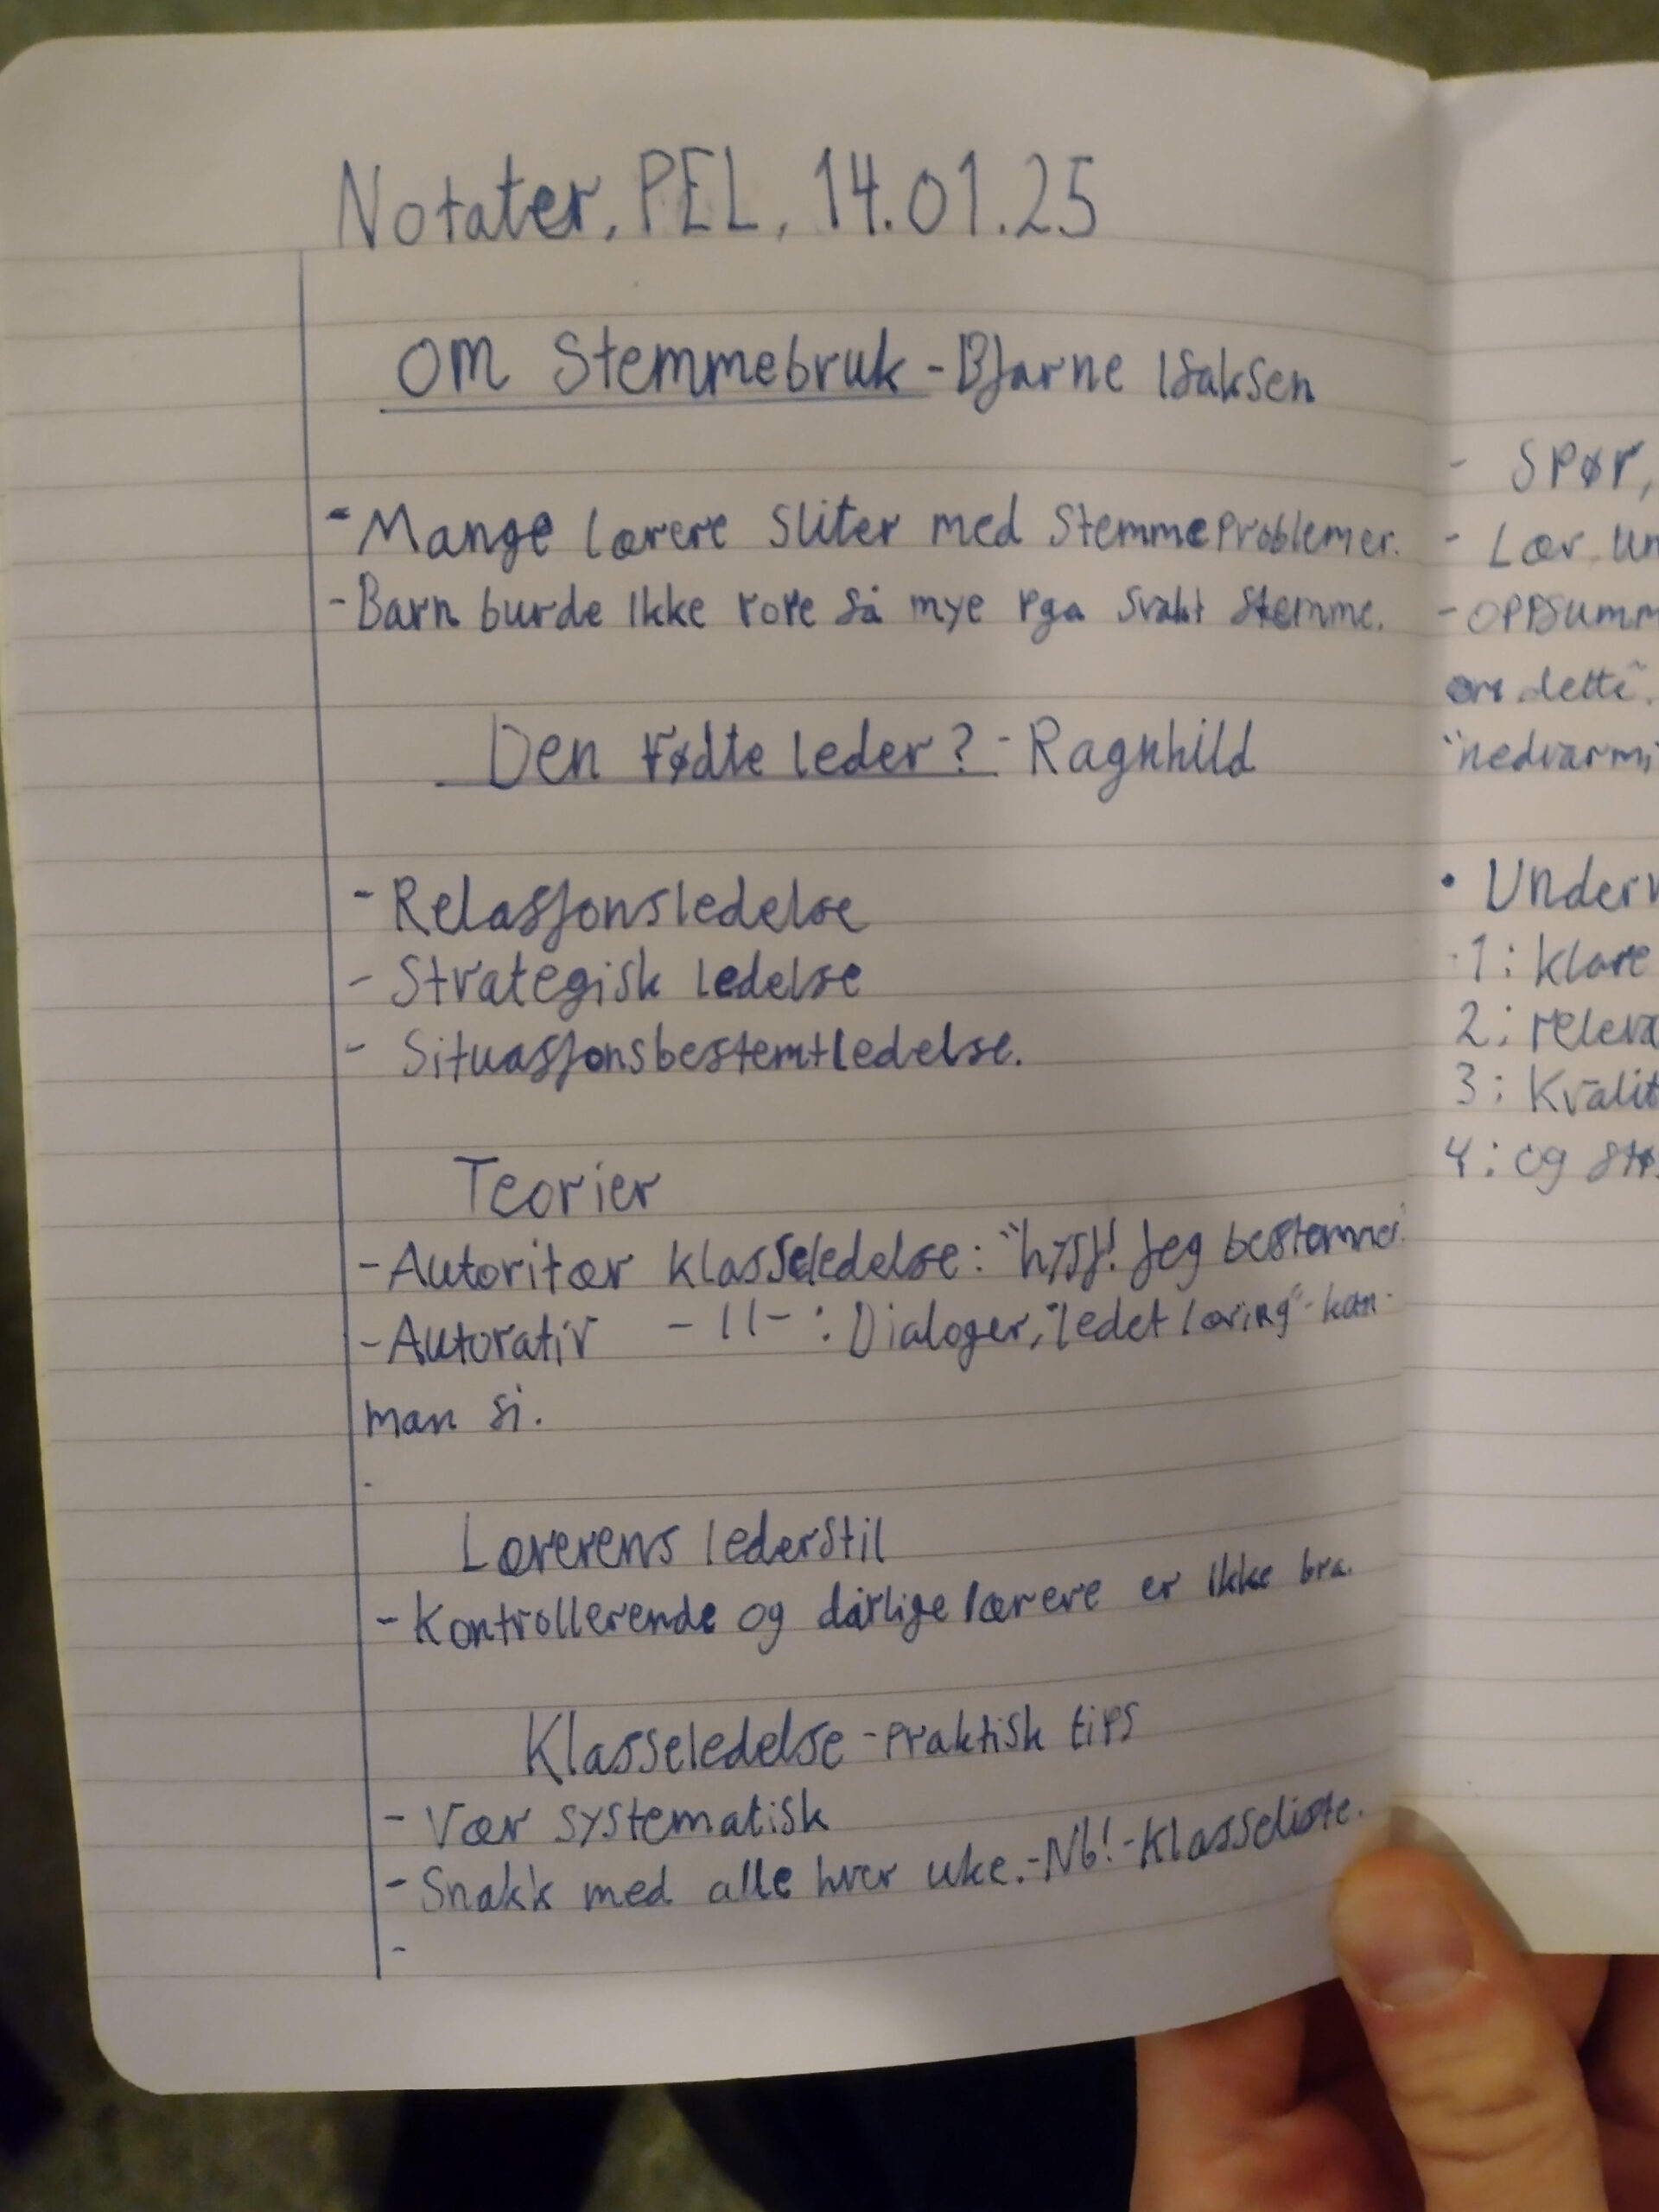 Notater, PEL, 14.01.25
Om Stemmebruk - Bjarne Isaksen
- Mange lærere sliter med stemmeproblemer.
- Barn burde ikke rope så mye pga svakt stemme.
Den fødte leder? - Ragnhild
- Relasjonsledelse
- Strategisk ledelse
- Situasjonsbestemtledelse.
Teorier
- Autoritær klasseledelse: "hysj! Jeg bestemmer.
- Autorativ -11- : Dialoger, "ledet læring" - kan
man si.
-
Lærerens lederstil
- Kontrollerende og dårlige lærere er ikke bra.
Klasseledelse - praktisk tips
- Vær systematisk
- Snakk med alle hver uke. - Nb! - Klasseliste.
-
- Spør,
- Lær. un
- Oppsumm
om dette".
"nedvarmi
• Underv
1: klare
2: releva
3: Kvalit
4: og stø